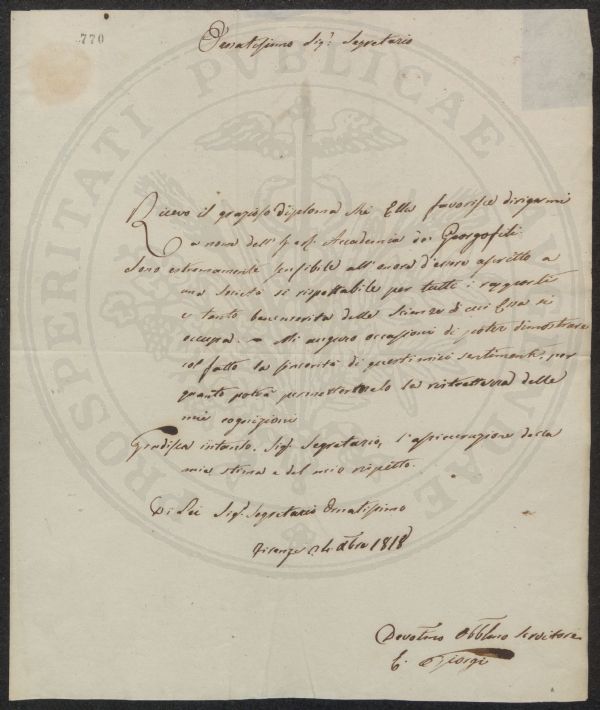 770
Ornatissimo Sigr. Segretario
Ricevo il grazioso diploma che Ella favorisce dirigermi
a nome dell' Accademia dei Georgofili
Sono estremamente sensibile all' onore d'essere ascritto a
una Società sì rispettabile per tutti i rapporti
e tanto benemerita delle Scienze di cui Essa si
occupa. Mi auguro occasioni di poter dimostrare
col fatto la sincerità di questi miei sentimenti, per
quanto potrà permettermelo la ristrettezza delle
mie cognizioni
Gradisca intanto, Sigr. Segretario, l'assicurazione della
mia stima e del mio rispetto.
Di Lei Sigr. Segretario Ornatissimo
Firenze Xbre 1818
Devotmo Obblmo Servitore
E. Giorgi
PROSPERITATI PVBLICAE AVGENDAE